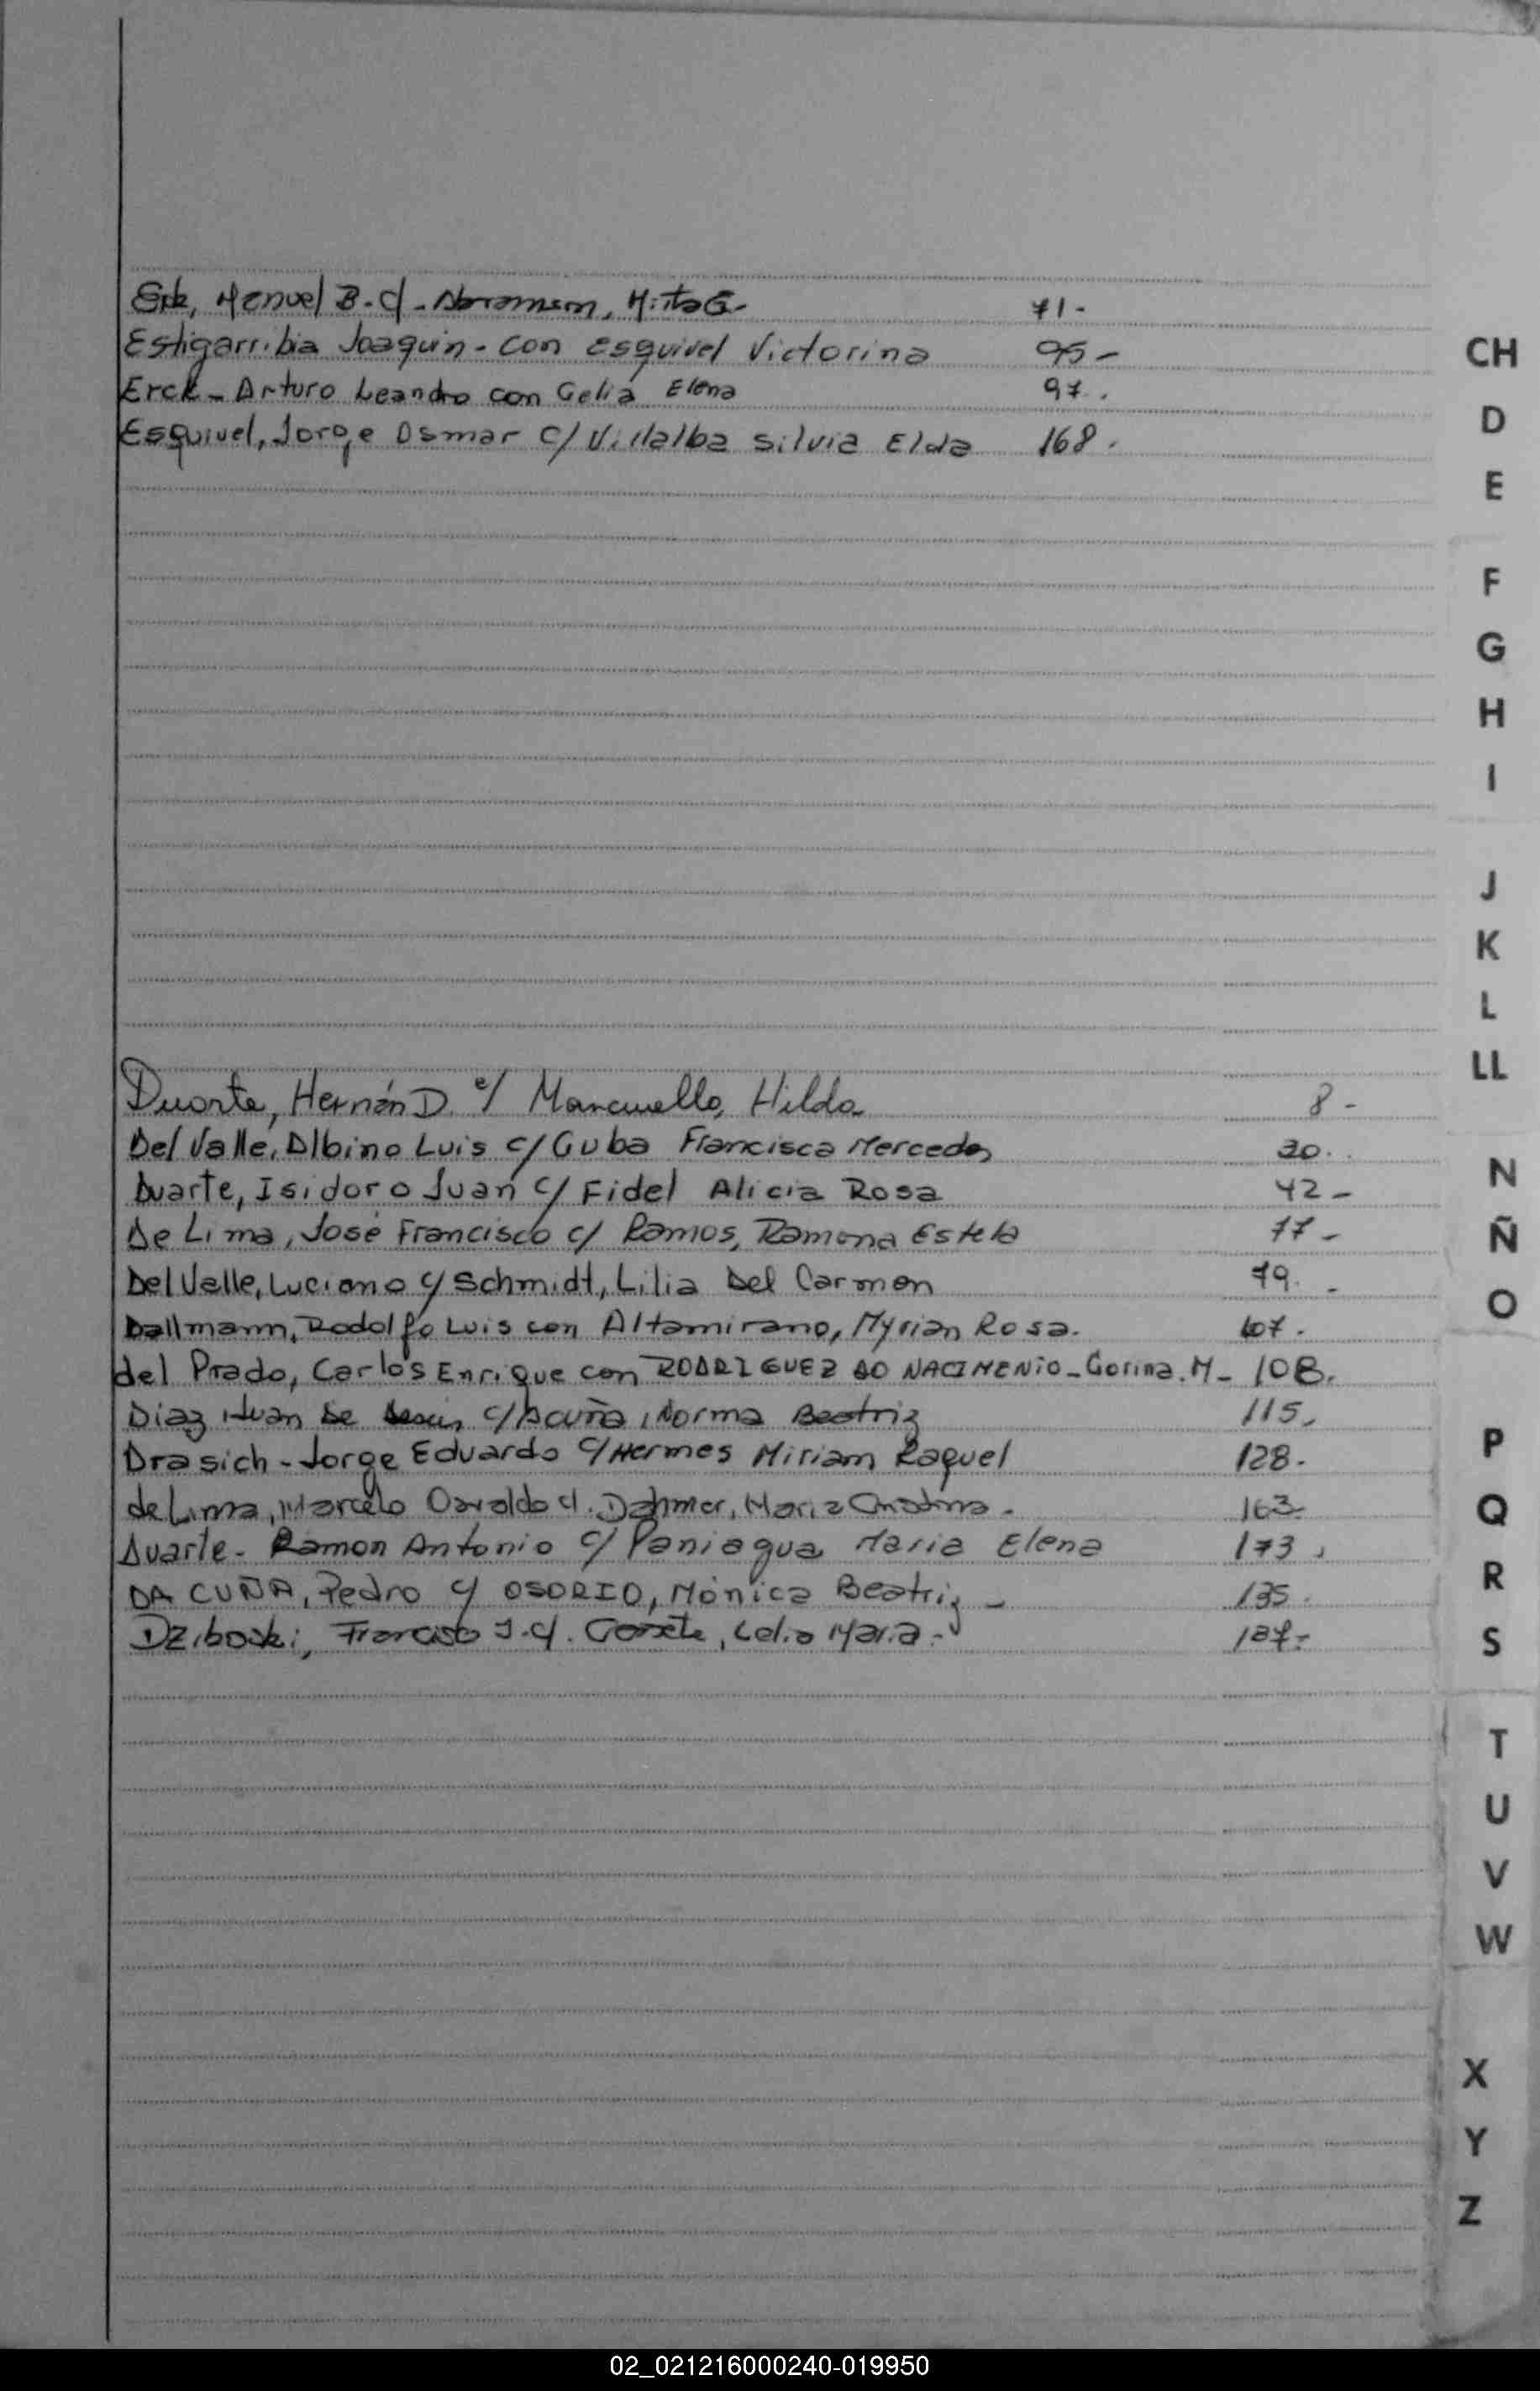 Erk, Manuel B. c/. Abramsm, Mirta G- 71-
Estigarribia Joaquin - con esquivel Victorina 95-
Erck - Arturo Leandro con Gelia Elena 97.
Esquivel, Jorge Osmar c/ Villalba Silvia Elda 168.
Duarte, Hernán D. c/ Mancuello, Hilda 8-
Del Valle, Albino Luis c/ Guba Francisca Mercedes 30.
Duarte, Isidoro Juan c/ Fidel Alicia Rosa 42-
De Lima, José Francisco c/ Ramos, Ramona Estela 77-
Del Valle, Luciano c/ Schmidt, Lilia Del Carmen 79. -
Dallmann, Rodolfo Luis con Altamirano, Myrian Rosa. 107.
del Prado, Carlos Enrique con RODRIGUEZ DO NACIMENIO - Gorina. M - 108.
Diaz Juan De Jesus c/ Acuña, Norma Beatriz 115.
Drasich - Jorge Eduardo c/ Hermes Miriam Raquel 128.
de Lima, Marcelo Osvaldo c/. Dahmer, Maria Cristina - 163-
Duarte - Ramon Antonio c/ Paniagua Maria Elena 173.
DA CUÑA, Pedro c/ OSORIO, Mónica Beatriz - 185.
Dziboski, Francisco J. c/. , Celia Maria - 187-
CH
D
E
F
G
H
I
J
K
L
LL
N
Ñ
O
P
Q
R
S
T
U
V
W
X
Y
Z
02_021216000240-019950